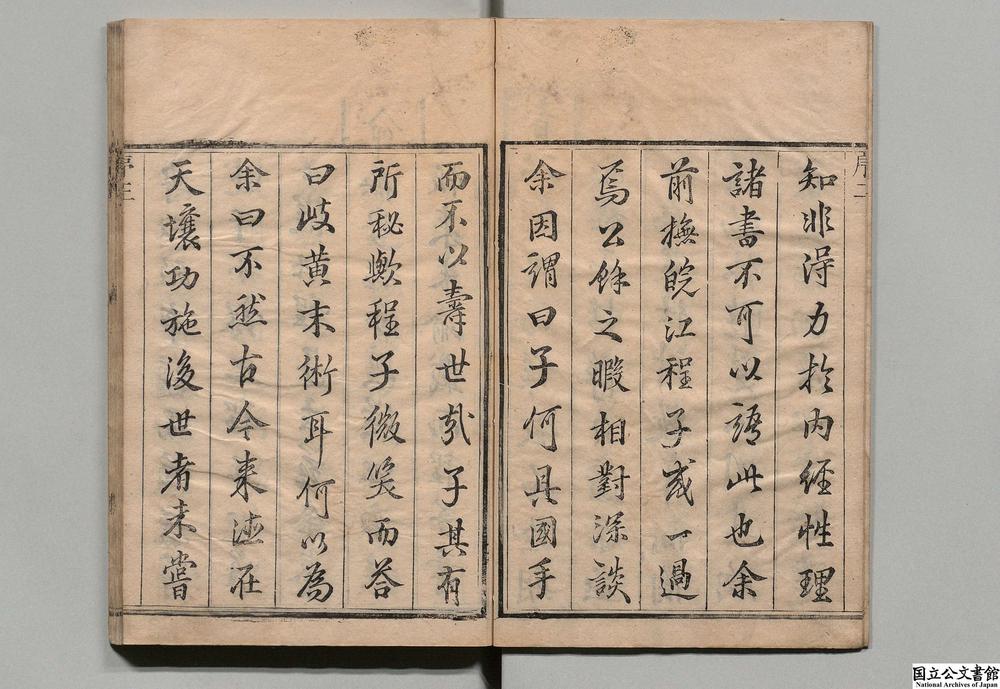 序二
知非淂力扵内經性理
諸書不可以語此也余
前撫皖江程子或一過
焉公餘之暇相對深談
余因謂曰子何具國手
而不以壽世㢤子其有
所秘歟程子微笑而荅
曰岐黄末術耳何以為
余曰不然古今来德在
天壤功施後世者未嘗
序三
国立公文書館
National Archives of Japan